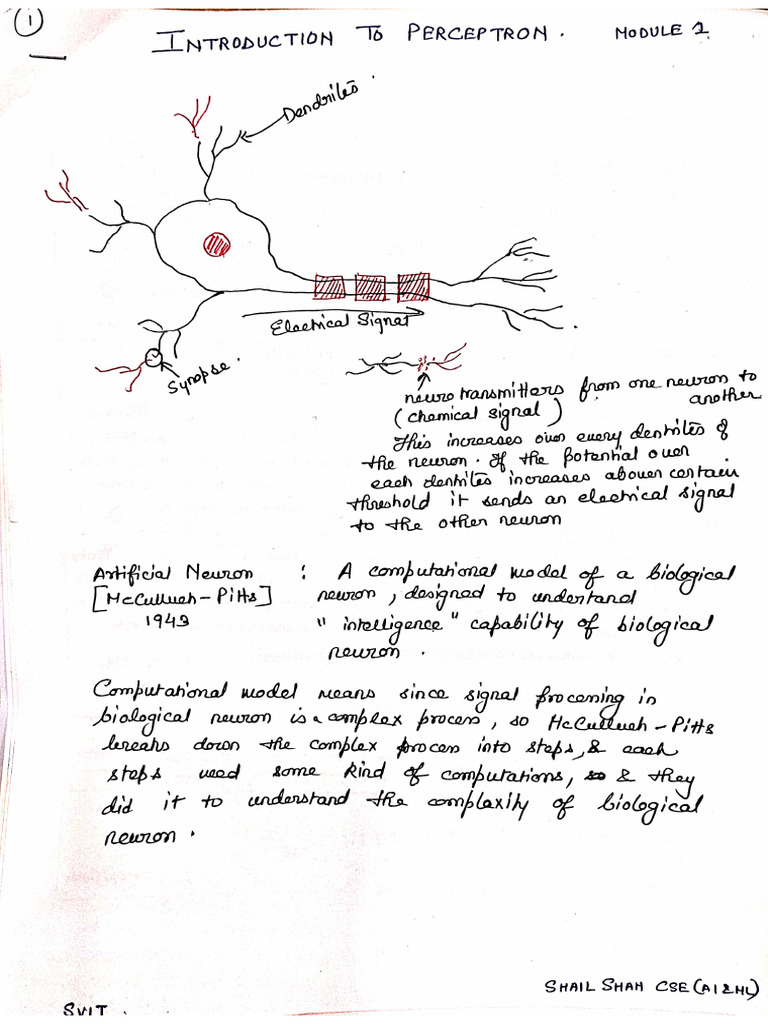 1
INTRODUCTION TO PERCEPTRON. MODULE 1
Dendrites.
Electrical Signal
Synopse.
neurotransmitters from one neuron to
another
(chemical signal)
This increases over every dentrites of
the neuron. If the potential over
each dentrites increases above certain
threshold it sends an electrical signal
to the other neuron
Artificial Neuron : A computational model of a biological
[McCulluch-Pitts] neuron, designed to understand
1943 "intelligence" capability of biological
neuron.
Computational model means since signal processing in
biological neuron is a complex process, so McCulluch-Pitts
breaks down the complex process into steps, & each
steps need some kind of computations, & they
did it to understand the complexity of biological
neuron.
SHAIL SHAH CSE(AI&ML)
SVIT.